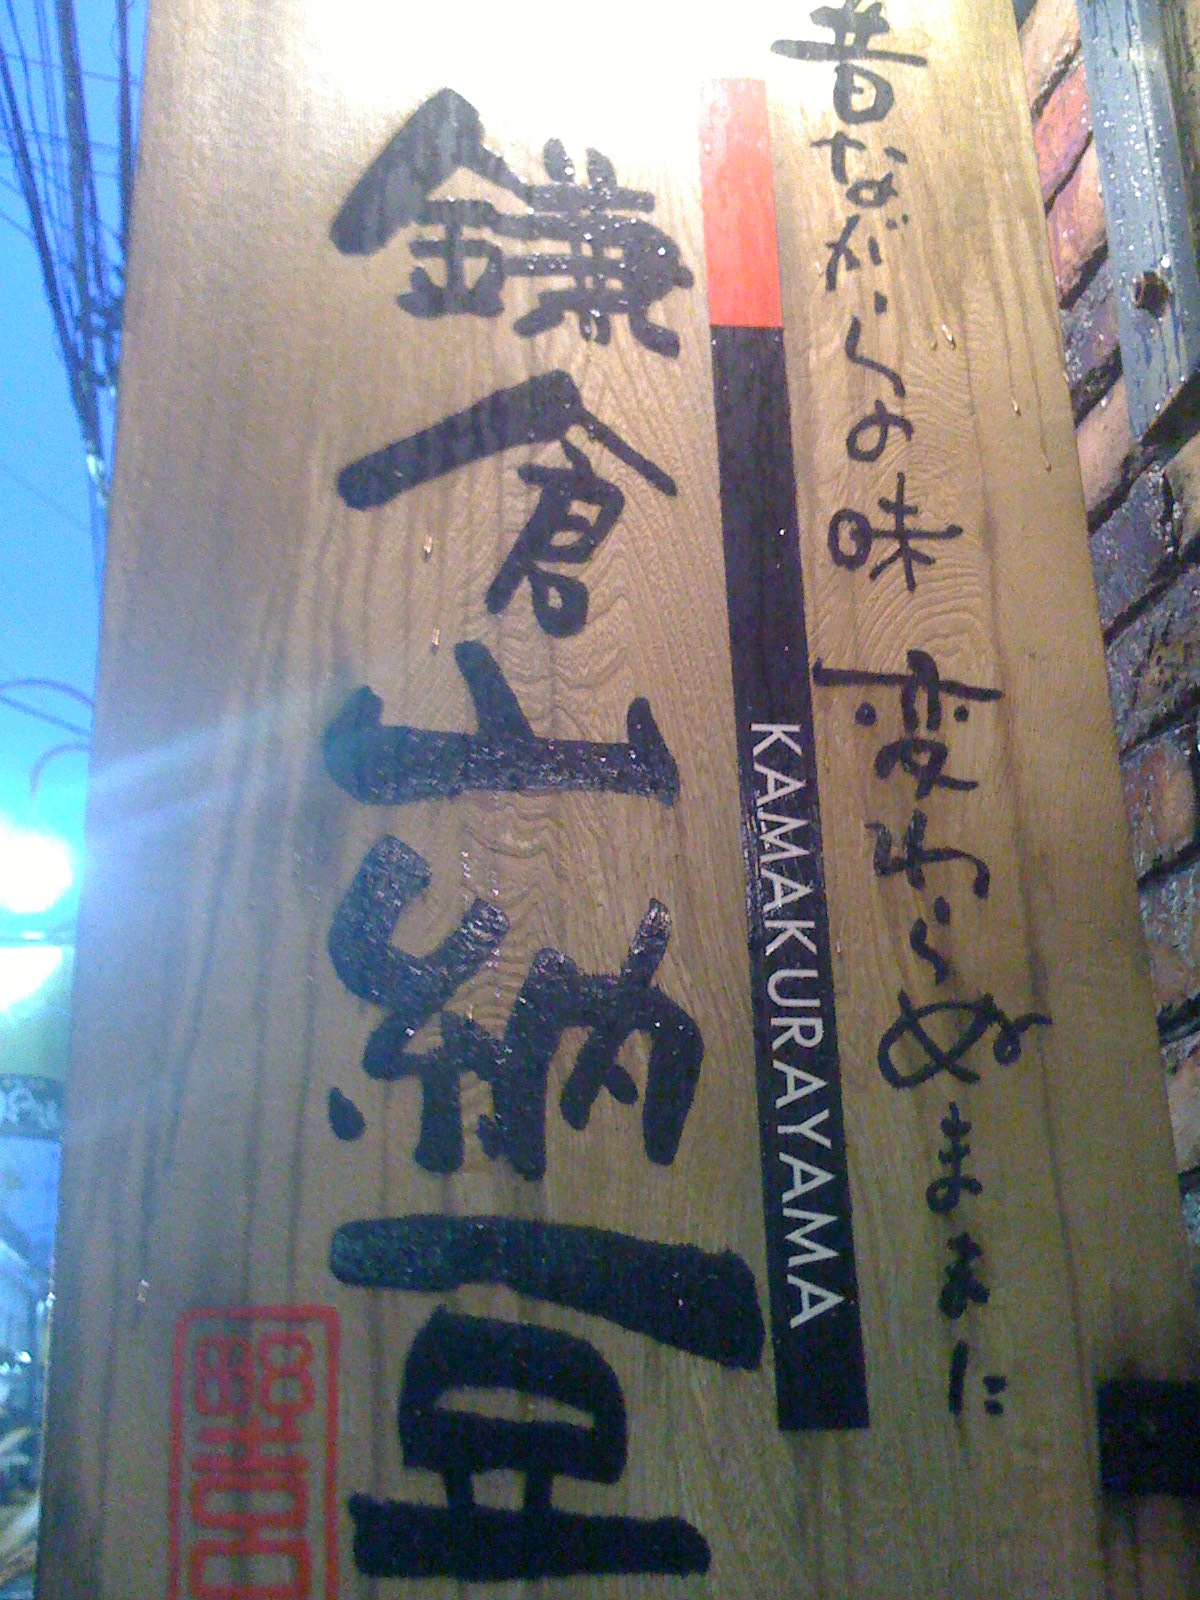 昔ながらの味 変わらぬままに
KAMAKURAYAMA
鎌倉山納豆